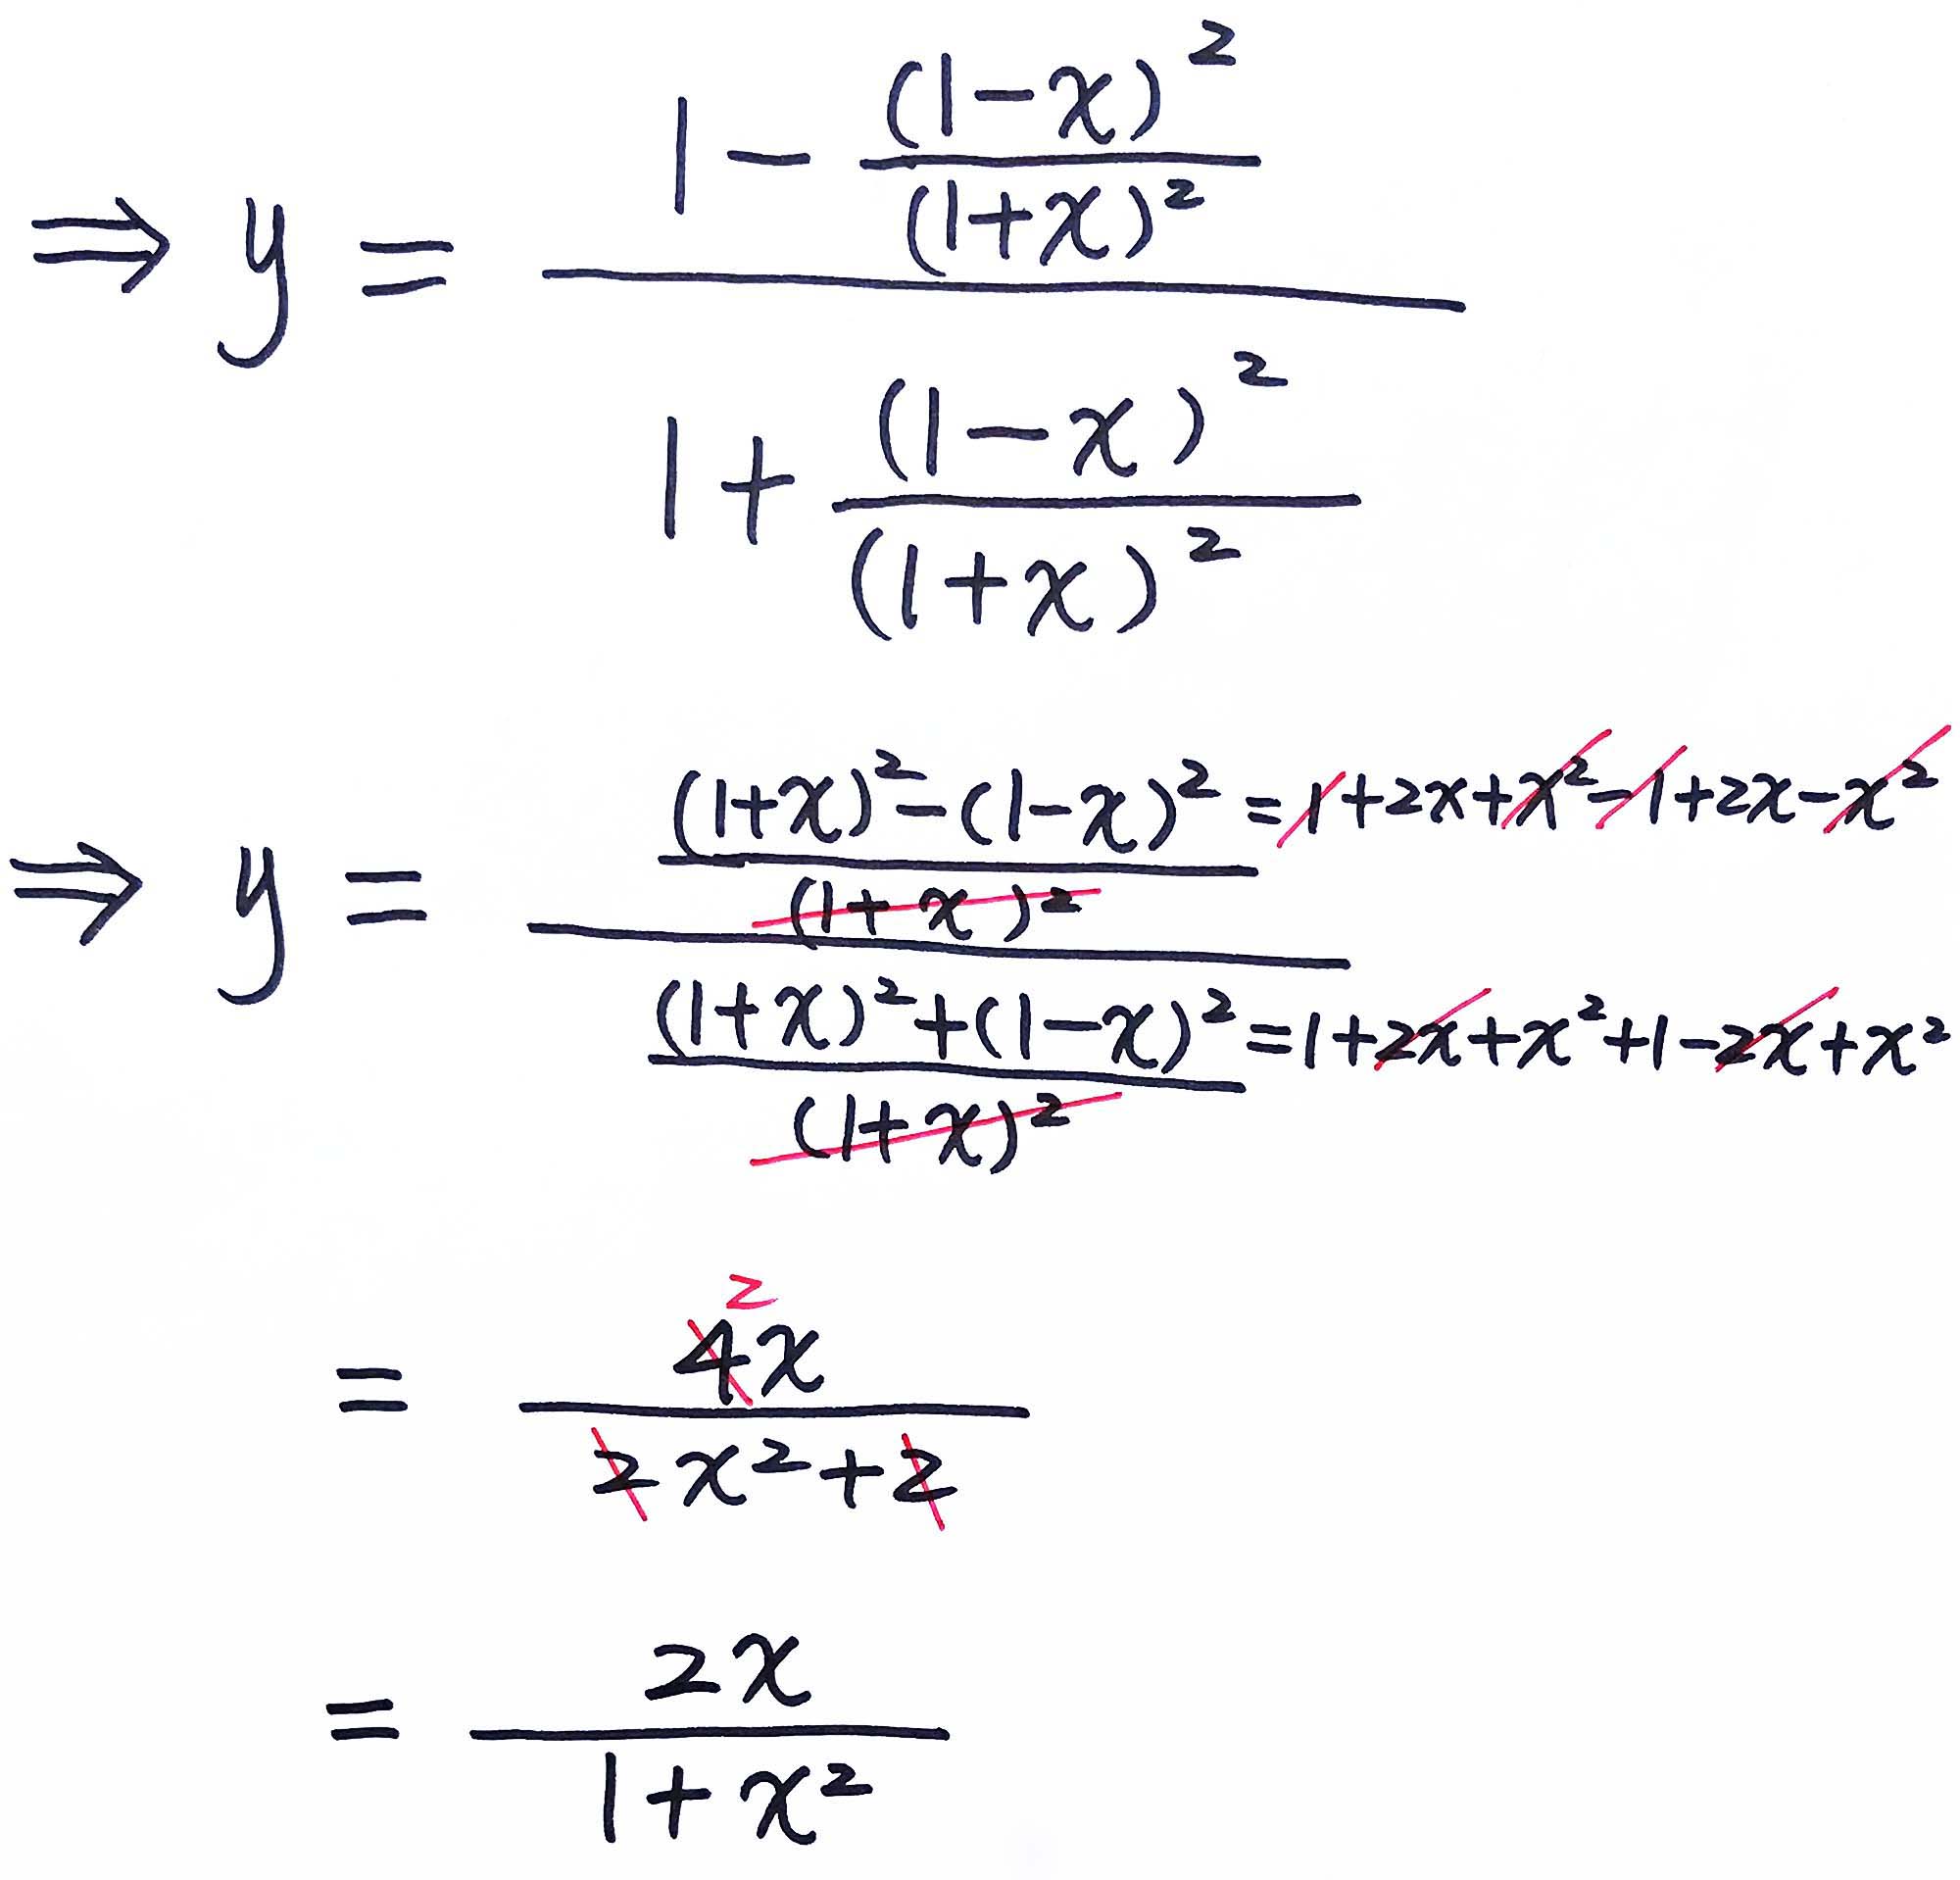 ⇒ y = \frac{1 - \frac{(1-x)^2}{(1+x)^2}}{1 + \frac{(1-x)^2}{(1+x)^2}}
⇒ y = \frac{\frac{(1+x)^2 - (1-x)^2}{(1+x)^2}}{\frac{(1+x)^2 + (1-x)^2}{(1+x)^2}}
= 1 + 2x + x^2 - 1 + 2x - x^2
= 1 + 2x + x^2 + 1 - 2x + x^2
2
= \frac{4x}{2x^2 + 2}
= \frac{2x}{1 + x^2}